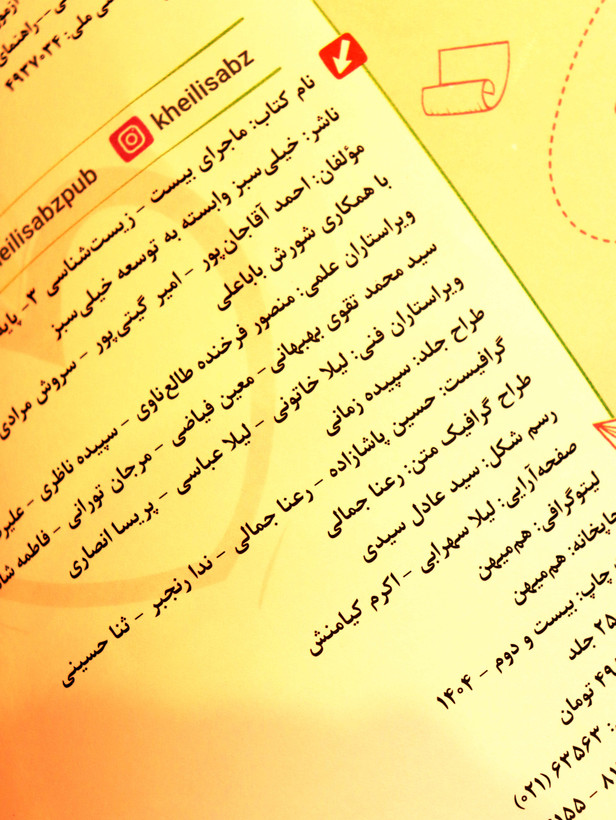 راهنمای
ملی: ۴۹۳۷۰۳۴
kheilisabz
heilisabzpub
نام کتاب: ماجرای بیست - زیست‌شناسی ۳ -
ناشر: خیلی‌سبز وابسته به توسعه خیلی‌سبز
مؤلفان: احمد آقاجان‌پور - امیر گیتی‌پور - سروش مرادی
با همکاری شورش باباعلی
ویراستاران علمی: منصور فرخنده طالع‌ناوی - سپیده ناظری -
سید محمد تقوی بهبهانی - معین فیاضی - مرجان تورانی - فاطمه
ویراستاران فنی: لیلا خاتونی - لیلا عباسی - پریسا انصاری
طراح جلد: سپیده زمانی
گرافیست: حسین پاشازاده - رعنا جمالی - ندا رنجبر - ثنا حسینی
طراح گرافیک متن: رعنا جمالی
رسم شکل: سید عادل سیدی
صفحه‌آرایی: لیلا سهرابی - اکرم کیامنش
لیتوگرافی: هم‌میهن
چاپخانه: هم‌میهن
چاپ: بیست و دوم - ۱۴۰۴
جلد
تومان
۶۳۵۶۳ (۰۲۱)